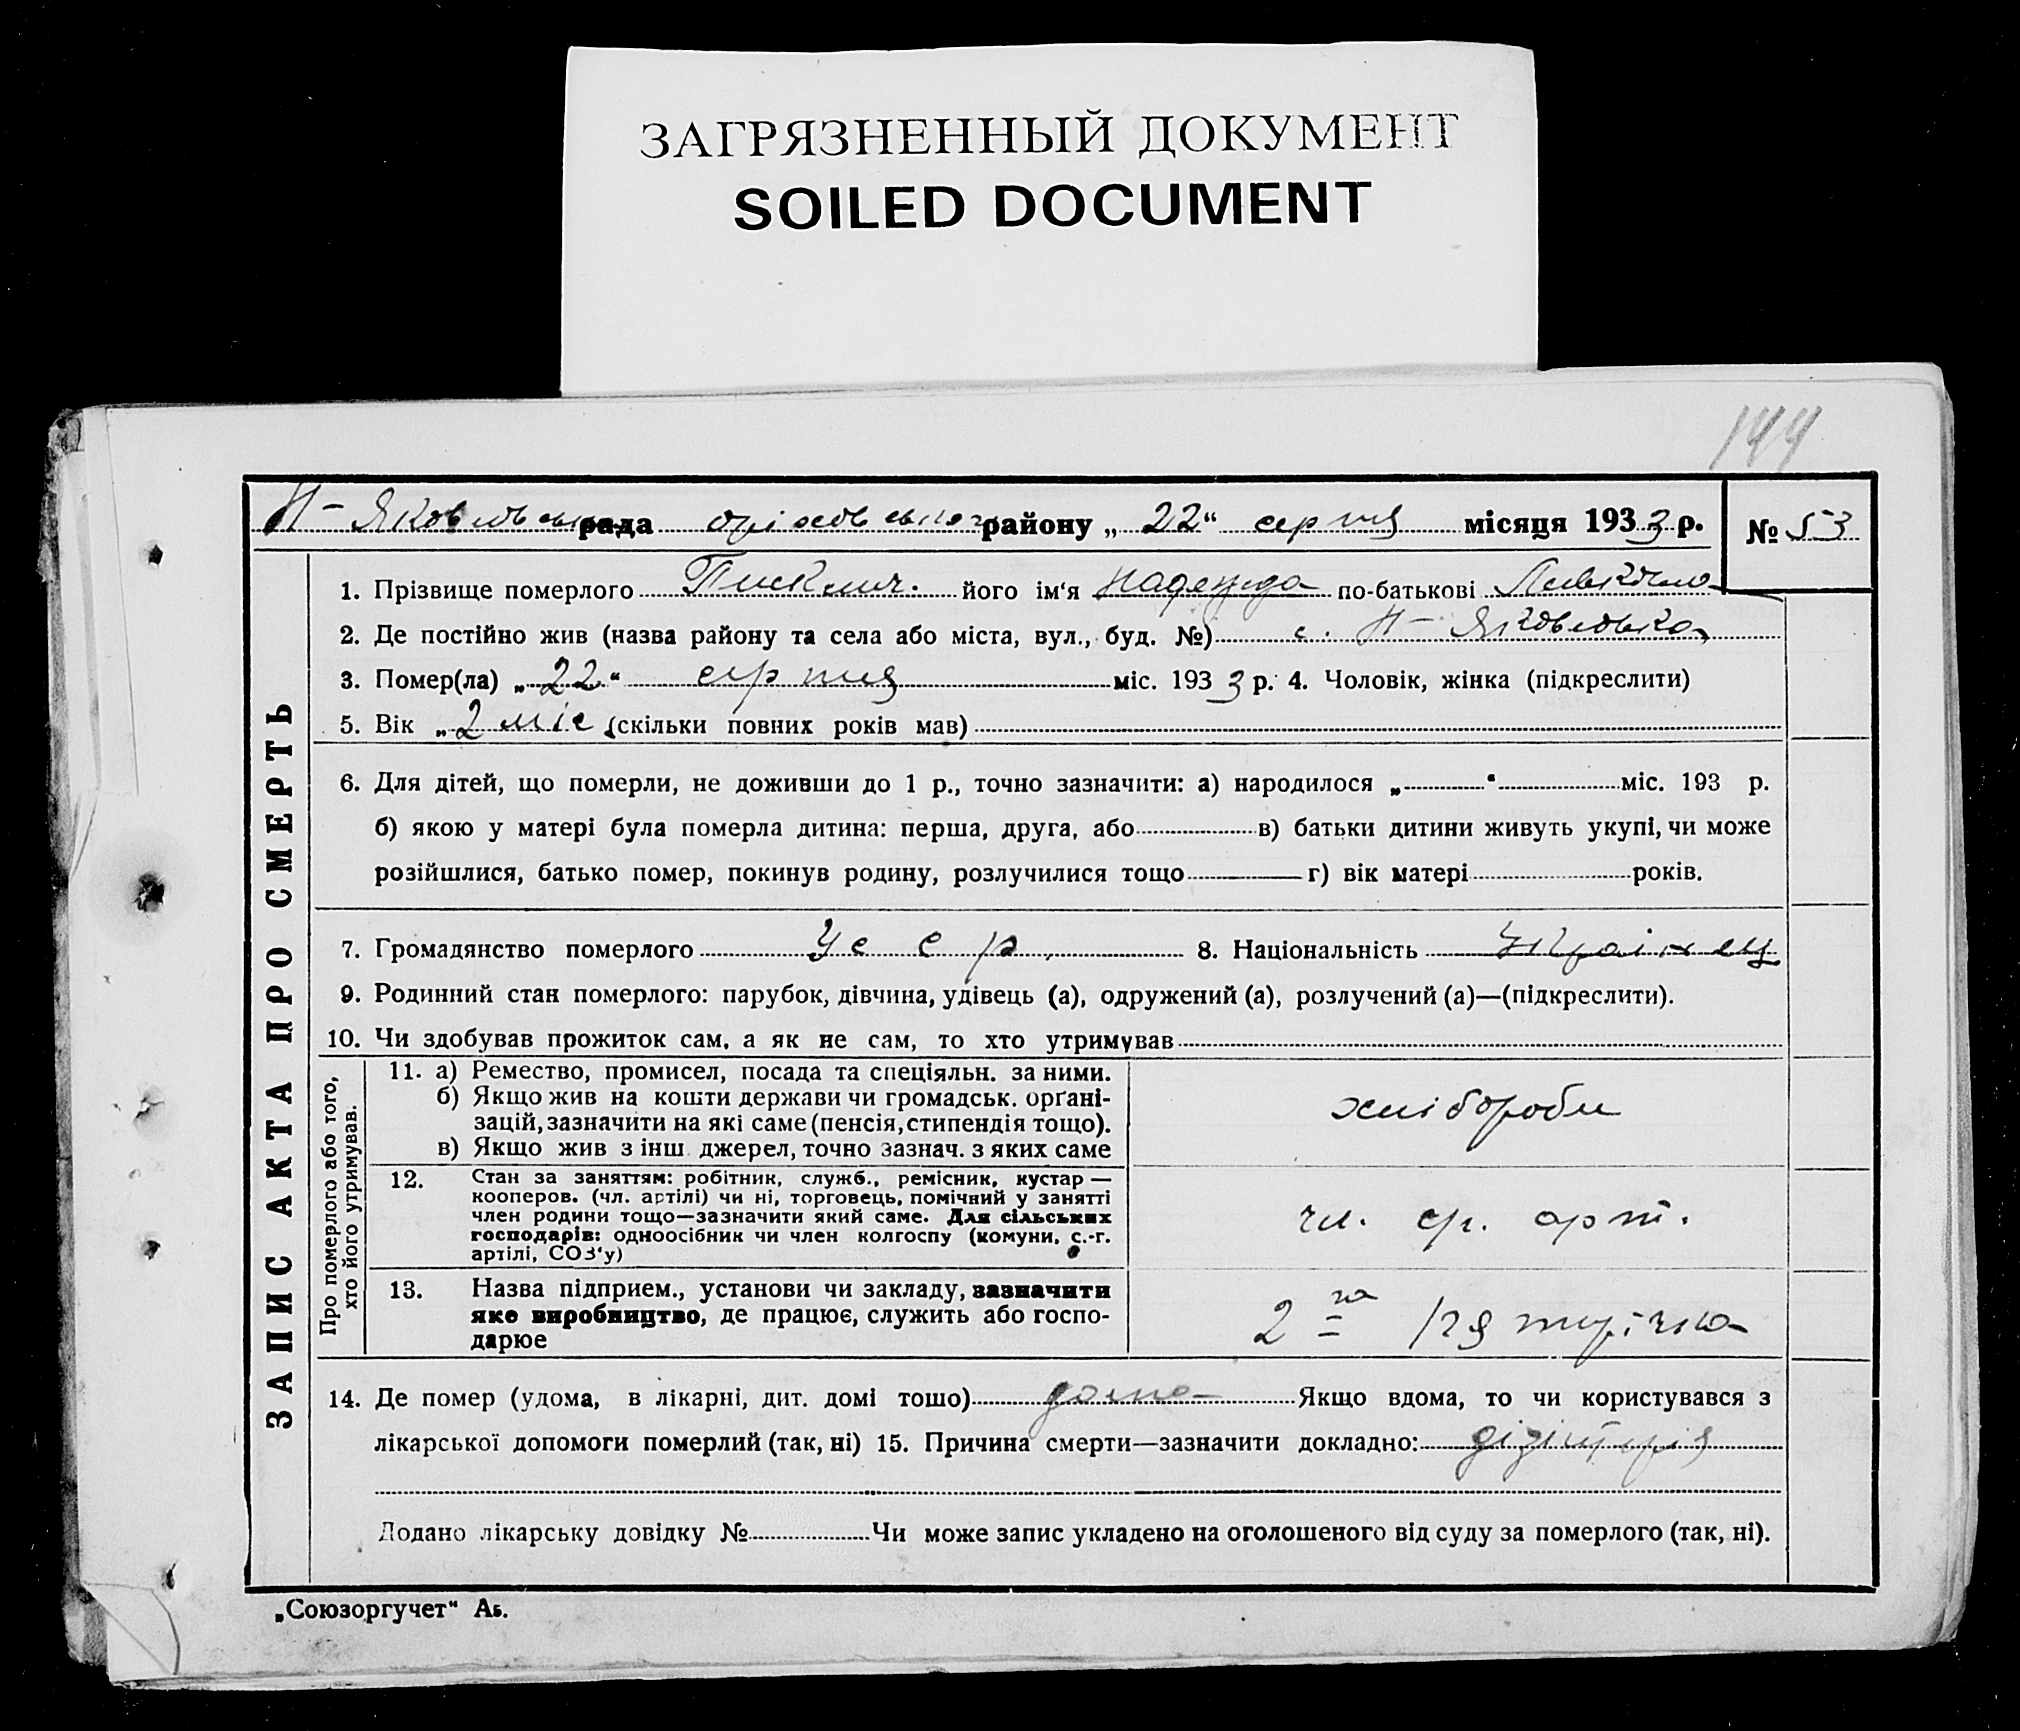 ЗАГРЯЗНЕННЫЙ ДОКУМЕНТ
SOILED DOCUMENT
144
Н-Яковлівська рада оріховського району „22“ серпня місяця 1933 р. № 53
1. Прізвище померлого його ім'я Надежда по-батькові
2. Де постійно жив (назва району та села або міста, вул., буд. №) с. Н-Яковлівка
3. Помер(ла) „22“ серпня міс. 1933 р. 4. Чоловік, жінка (підкреслити)
5. Вік „2 міс (скільки повних років мав)
6. Для дітей, що померли, не доживши до 1 р., точно зазначити: а) народилося „ “ міс. 193 р.
б) якою у матері була померла дитина: перша, друга, або в) батьки дитини живуть укупі, чи може
розійшлися, батько помер, покинув родину, розлучилися тощо г) вік матері років.
7. Громадянство померлого УССР 8. Національність Україн
9. Родинний стан померлого: парубок, дівчина, удівець (а), одружений (а), розлучений (а)—(підкреслити).
10. Чи здобував прожиток сам, а як не сам, то хто утримував
ЗАПИС АКТА ПРО СМЕРТЬ
Про померлого або того,
хто його утримував.
11. а) Ремество, промисел, посада та спеціяльн. за ними.
б) Якщо жив на кошти держави чи громадськ. орґані-
зацій, зазначити на які саме (пенсія, стипендія тощо).
в) Якщо жив з інш. джерел, точно зазнач. з яких саме
хлібороби
12. Стан за заняттям: робітник, служб., ремісник, кустар —
кооперов. (чл. артілі) чи ні, торговець, помічний у занятті
член родини тощо—зазначити який саме. Для сільських
господарів: одноосібник чи член колгоспу (комуни, с.-г.
артілі, СОЗ'у)
чл. ср. арт.
13. Назва підприєм., установи чи закладу, зазначити
яке виробництво, де працює, служить або госпо-
дарює
2га Пятирічка
14. Де помер (удома, в лікарні, дит. домі тощо) дома Якщо вдома, то чи користувався з
лікарської допомоги померлий (так, ні) 15. Причина смерти—зазначити докладно: дізінтерія
Додано лікарську довідку № Чи може запис укладено на оголошеного від суду за померлого (так, ні).
„Союзоргучет“ Аб.